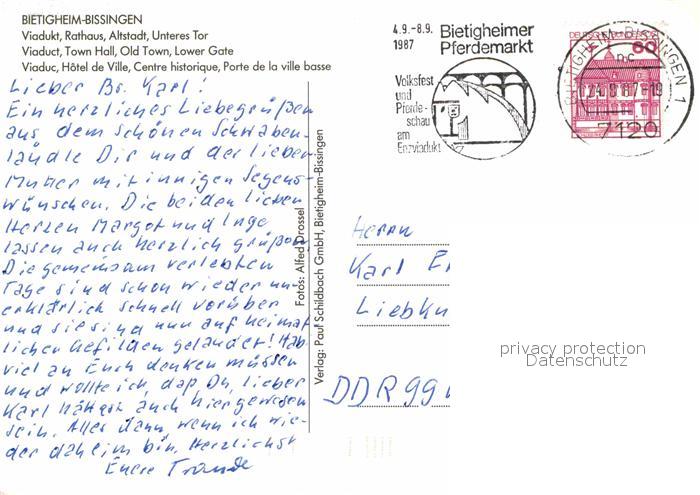 BIETIGHEIM-BISSINGEN
Viadukt, Rathaus, Altstadt, Unteres Tor
Viaduct, Town Hall, Old Town, Lower Gate
Viaduc, Hôtel de Ville, Centre historique, Porte de la ville basse
Lieber Br. Karl!
Ein herzliches Liebegrüßen
aus dem schönen Schwaben-
ländle Dir und der lieben
Mutter mit innigen Segens-
wünschen. Die beiden lieben
Herzen Margot und Inge
lassen auch herzlich grüßen.
Die gemeinsam verlebten
Tage sind schon wieder un-
erklärlich schnell vorüber
und sie sind nun auf heimat
lichen Gefilden gelandet! Hab
viel an Euch denken müssen
und wollte ich, daß Du, lieber
Karl hättest auch hier gewesen
sein. Alles dann, wenn ich wie-
der daheim bin. Herzlichst
Eure
Fotos: Alfred Drossel
Verlag: Paul Schildbach GmbH, Bietigheim-Bissingen
4.9.-8.9.
1987
Bietigheimer
Pferdemarkt
Volksfest
und
Pferde-
schau
am
Enzviadukt
DEUTSCHE
60
BIETIGHEIM-BISSINGEN 1
nc
24.8.87-19
7120
Herrn
Karl
Liebkn
DDR 99
privacy protection
Datenschutz